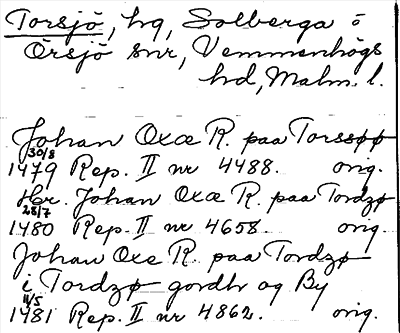 Torsjö, hg, Solberga o
Örsjö snr, Vemmenhögs
hd, Malm. l.
Johan Oxæ R. paa Torssøø
30/8
1479 Rep. II nr 4488. orig.
Hr. Johan Oxæ R. paa Tordzø
28/7
1480 Rep. II nr 4658 orig.
Johan Oxe R. paa Tordzø
i Tordzø gordh og By
11/5
1481 Rep. II nr 4862. orig.